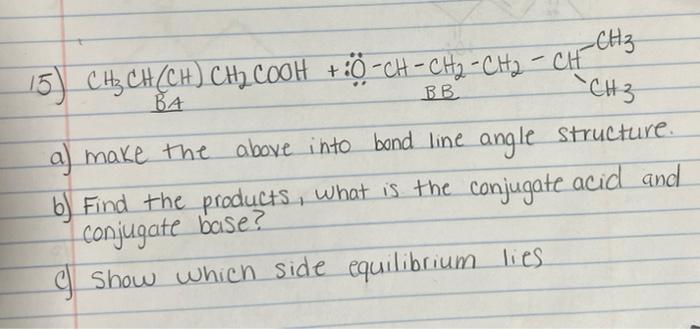 15) CH3CH(CH)CH2COOH + :Ö-CH-CH2-CH2-CH-CH3
CH3
BA BB
a) make the above into bond line angle structure.
b) Find the products, what is the conjugate acid and
conjugate base?
c) Show which side equilibrium lies